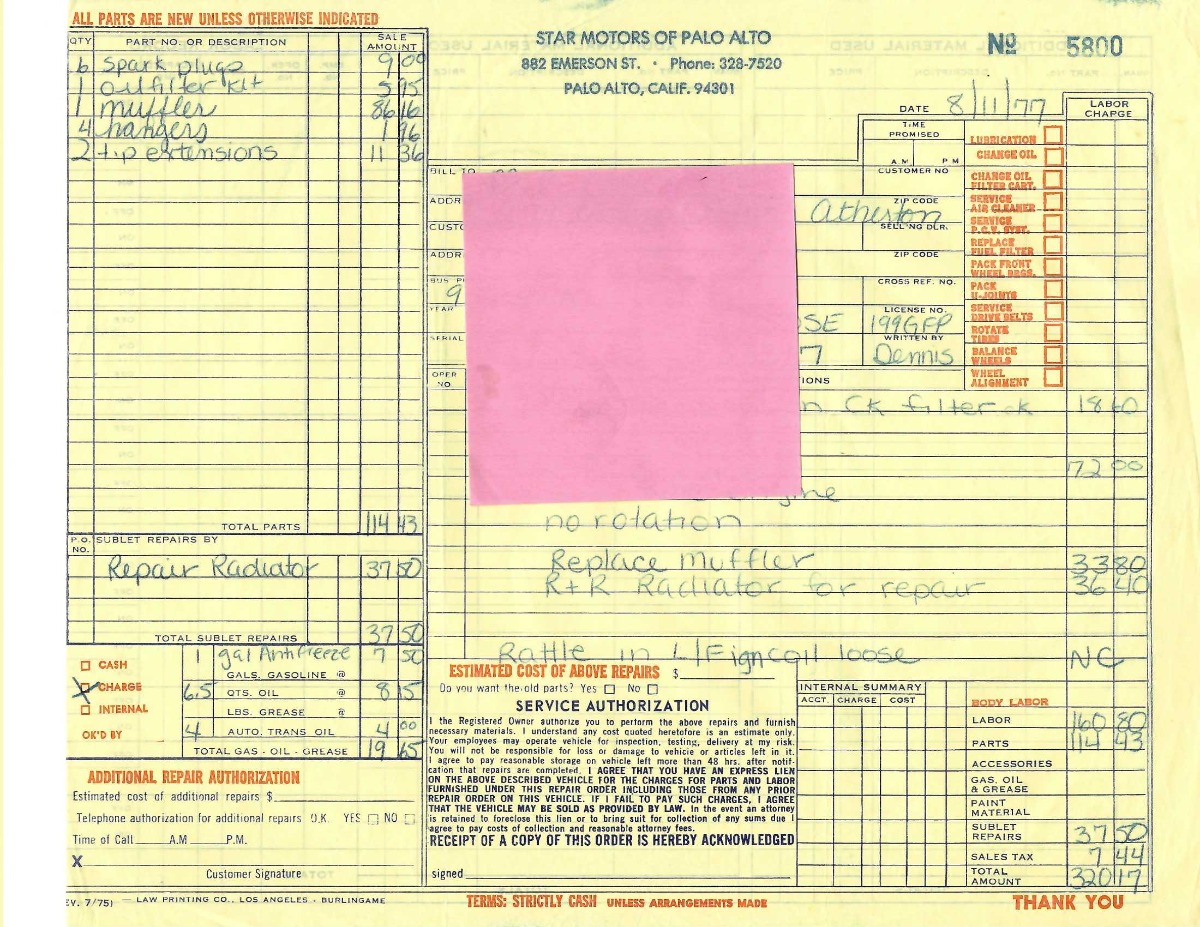 ALL PARTS ARE NEW UNLESS OTHERWISE INDICATED
QTY PART NO. OR DESCRIPTION SALE AMOUNT
6 Spark plugs 9 00
1 oil filter kit 5 95
1 muffler 86 16
4 hangers 1 96
2 tip extensions 11 36
TOTAL PARTS 114 43
P.O. NO. SUBLET REPAIRS BY
Repair Radiator 37 50
TOTAL SUBLET REPAIRS 37 50
CASH
CHARGE
INTERNAL
OK'D BY
1 gal Antifreeze 7 50
GALS. GASOLINE @
6.5 QTS. OIL @ 8 15
LBS. GREASE @
4 AUTO. TRANS OIL 4 00
TOTAL GAS - OIL - GREASE 19 65
ADDITIONAL REPAIR AUTHORIZATION
Estimated cost of additional repairs $
Telephone authorization for additional repairs O.K. YES NO
Time of Call A.M P.M.
X
Customer Signature
EV. 7/75) — LAW PRINTING CO., LOS ANGELES - BURLINGAME
STAR MOTORS OF PALO ALTO
882 EMERSON ST. • Phone: 328-7520
PALO ALTO, CALIF. 94301
No 5800
DATE 8/11/77
LABOR CHARGE
TIME PROMISED
A.M P M
BILL TO
CUSTOMER NO
ADDR
ZIP CODE
Atherton
CUSTO
SELLING DLR.
ADDR
ZIP CODE
BUS P
9
CROSS REF. NO.
YEAR
LICENSE NO.
OSE 199GFP
SERIAL
WRITTEN BY
7 Dennis
OPER NO.
IONS
LUBRICATION
CHANGE OIL
CHANGE OIL FILTER CART.
SERVICE AIR CLEANER
SERVICE P.C.V. SYST.
REPLACE FUEL FILTER
PACK FRONT WHEEL BRGS.
PACK U-JOINTS
SERVICE DRIVE BELTS
ROTATE TIRES
BALANCE WHEELS
WHEEL ALIGNMENT
n CK filter ok 18 60
72 00
gine
no rotation
Replace Muffler 33 80
R+R Radiator for repair 36 40
Rattle in L/F ign coil loose NC
ESTIMATED COST OF ABOVE REPAIRS $
Do you want the old parts? Yes No
SERVICE AUTHORIZATION
I the Registered Owner authorize you to perform the above repairs and furnish
necessary materials. I understand any cost quoted heretofore is an estimate only.
Your employees may operate vehicle for inspection, testing, delivery at my risk.
You will not be responsible for loss or damage to vehicle or articles left in it.
I agree to pay reasonable storage on vehicle left more than 48 hrs. after notif-
cation that repairs are completed. I AGREE THAT YOU HAVE AN EXPRESS LIEN
ON THE ABOVE DESCRIBED VEHICLE FOR THE CHARGES FOR PARTS AND LABOR
FURNISHED UNDER THIS REPAIR ORDER INCLUDING THOSE FROM ANY PRIOR
REPAIR ORDER ON THIS VEHICLE. IF I FAIL TO PAY SUCH CHARGES, I AGREE
THAT THE VEHICLE MAY BE SOLD AS PROVIDED BY LAW. In the event an attorney
is retained to foreclose this lien or to bring suit for collection of any sums due I
agree to pay costs of collection and reasonable attorney fees.
RECEIPT OF A COPY OF THIS ORDER IS HEREBY ACKNOWLEDGED
signed
TERMS: STRICTLY CASH UNLESS ARRANGEMENTS MADE
INTERNAL SUMMARY
ACCT. CHARGE COST
BODY LABOR
LABOR 160 80
PARTS 114 43
ACCESSORIES
GAS. OIL & GREASE
PAINT MATERIAL
SUBLET REPAIRS 37 50
SALES TAX 7 44
TOTAL AMOUNT 320 17
THANK YOU